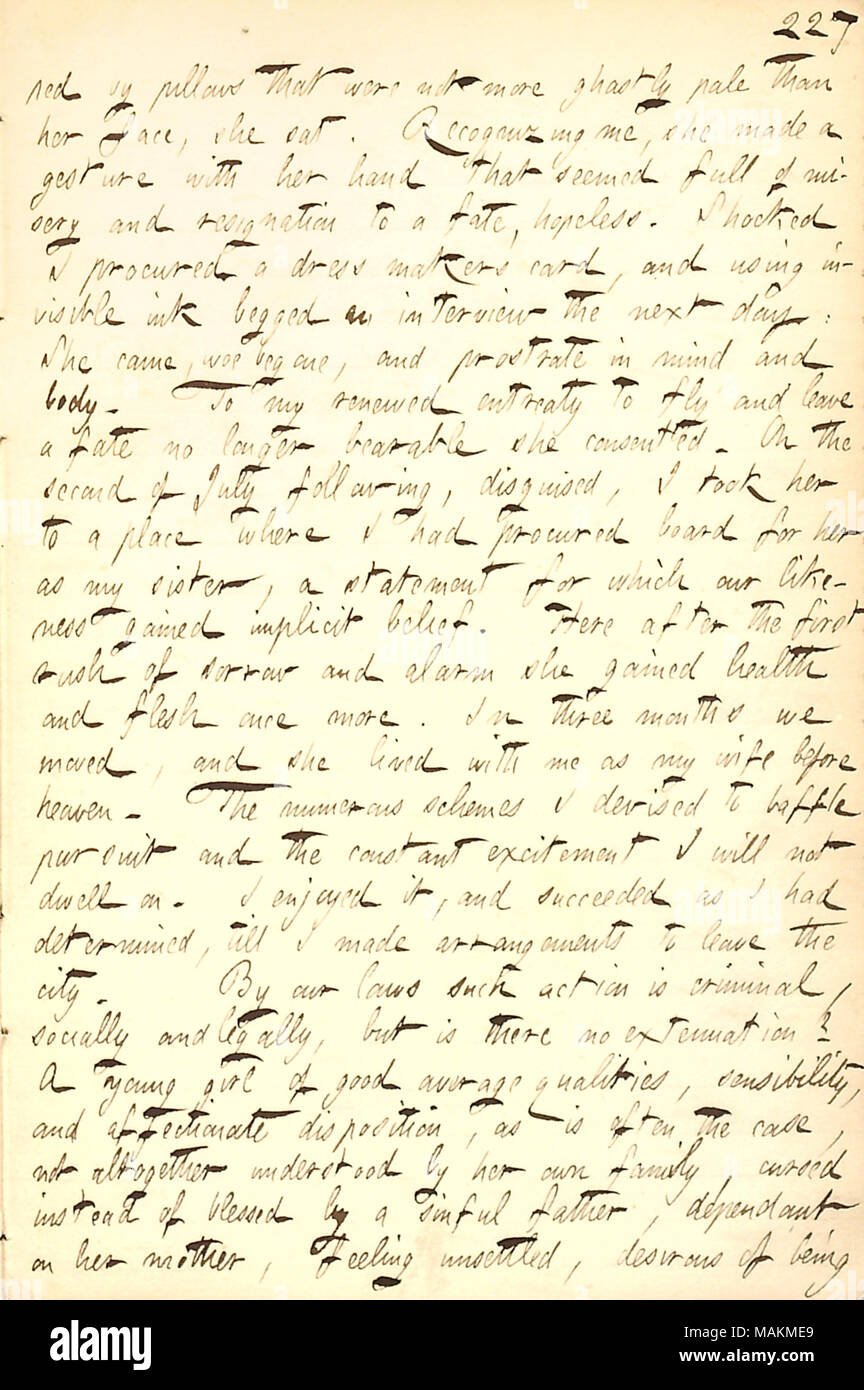 227
red by pillows that were not more ghastly pale than
her face, she sat. Recognizing me, she made a
gesture with her hand that seemed full of mi-
sery and resignation to a fate, hopeless. Shocked
I procured a dress makers card, and using in-
visible ink begged an interview the next day:
She came, woe begone, and prostrate in mind and
body. To my renewed entreaty to fly and leave
a fate no longer bearable she consented. On the
second of July following, disguised, I took her
to a place where I had procured board for her
as my sister, a statement for which our like-
ness gained implicit belief. Here after the first
rush of sorrow and alarm she gained health
and flesh once more. In three months we
moved, and she lived with me as my wife before
heaven. The numerous schemes I devised to baffle
pursuit and the constant excitement I will not
dwell on. I enjoyed it, and succeeded as I had
determined, till I made arrangements to leave the
city. By our laws such action is criminal,
socially and legally, but is there no extenuation?
A young girl of good average qualities, sensibility,
and affectionate disposition, as is often the case,
not altogether understood by her own family, cursed
instead of blessed by a sinful father, dependant
on her mother, feeling unsettled, desirous of being
alamy
Image ID: MAKME9
www.alamy.com